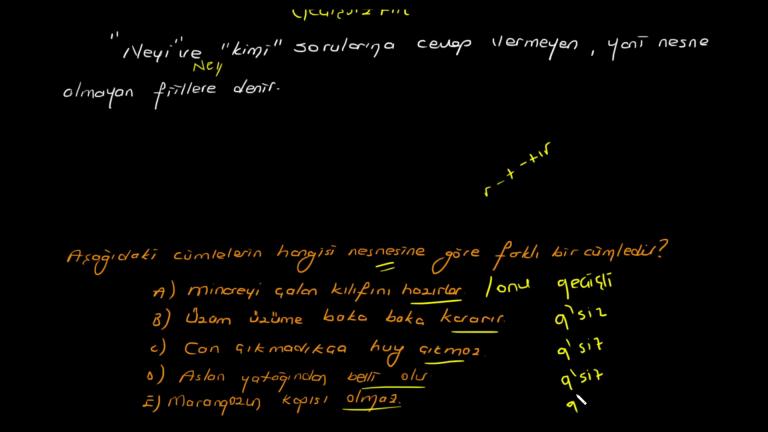 Geçişsiz Fiil
"Neyi" ve "kimi" sorularına cevap vermeyen, yani nesne
Ney
olmayan fiillere denir.
r -t -tır
Aşağıdaki cümlelerin hangisi nesnesine göre farklı bir cümledir?
A) Minareyi çalan kılıfını hazırlar. /onu geçişli
B) Üzüm üzüme baka baka kararır. g'siz
C) Can çıkmadıkça huy çıkmaz. g'siz
D) Aslan yatağından belli olur g'siz
E) Marangozun kapısı olmaz. g'